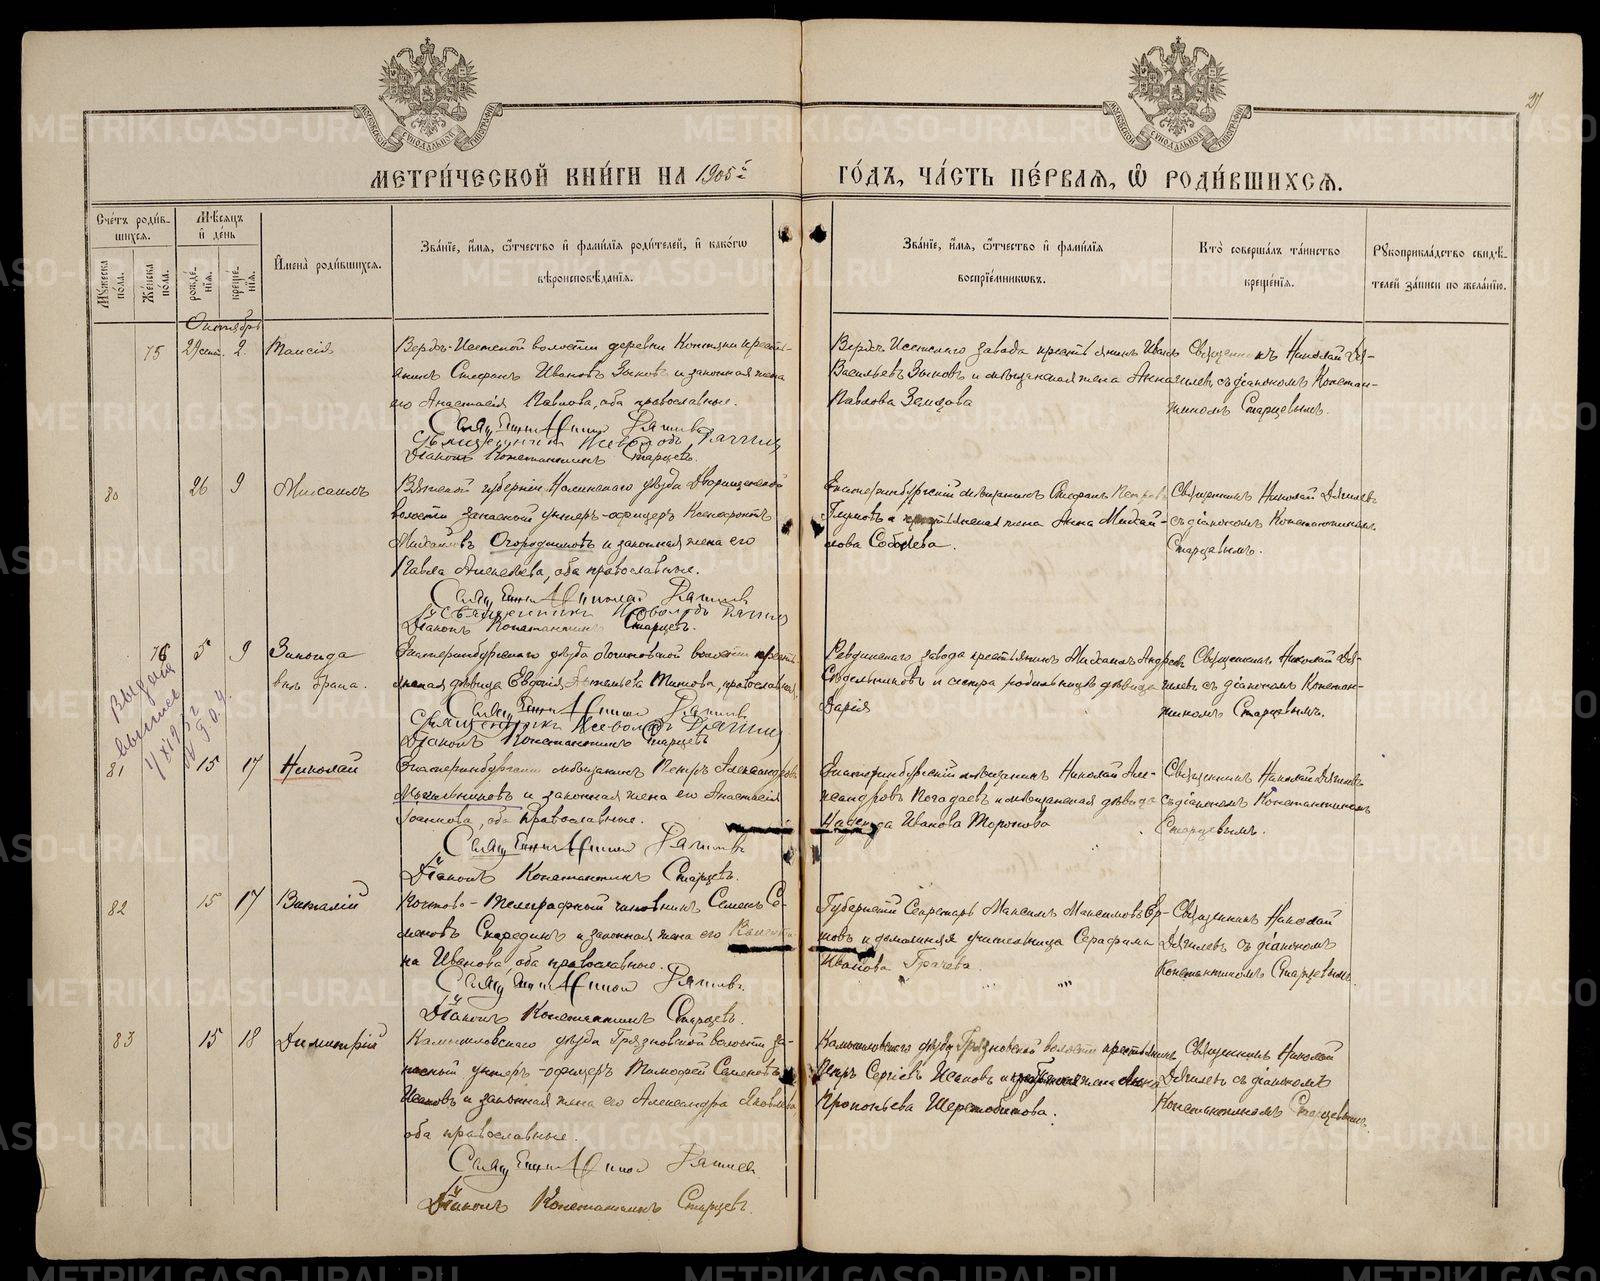 27
МЕТРИЧЕСКОЙ КНИГИ НА 1905й ГОДЪ, ЧАСТЬ ПЕРВАЯ, Ѡ РОДИВШИХСЯ.
Счетъ родив-
шихся.
Мужеска
пола.
Женска
пола.
Мѣсяцъ
и день
рожде-
нія.
креще-
нія.
Имена родившихся.
Званіе, имя, отчество и фамилія родителей, и какогѡ
вѣроисповѣданія.
Званіе, имя, отчество и фамилія
воспріемниковъ.
Кто совершалъ таинство
крещенія.
Рукоприкладство свидѣ-
телей записи по желанію.
Октябрь
75 29 сент. 2. Таисія
Верхъ-Исетской волости деревни
янинъ Стефанъ Ивановъ Зыковъ и законная жена
его Анастасія Павлова, оба православные.
Діаконъ Константинъ Старцевъ.
Верхъ-Исетскаго завода крестьянинъ Иванъ
Васильевъ Зыковъ и мѣщанская жена Анна
Павлова
Священникъ Николай Дя-
гилевъ съ діакономъ Констан-
тиномъ Старцевымъ.
80 26 9 Мисаилъ
Вятской губерніи Нолинскаго уѣзда
волости запасный унтеръ-офицеръ Ксенофонтъ
Михайловъ Огородниковъ и законная жена его
Павла Алексѣева, оба православные.
Діаконъ Константинъ Старцевъ.
Екатеринбургскій мѣщанинъ Стефанъ Петровъ
Глуховъ и крестьянская жена Анна Михай-
лова Соболева.
Священникъ Николай Дягилевъ
съ діакономъ Константиномъ
Старцевымъ.
76 5 9 Зинаида
внѣ брака.
Екатеринбургскаго уѣзда волости кресть-
янская дѣвица Евдокія Титова, православная.
Діаконъ Константинъ Старцевъ
Ревдинскаго завода крестьянинъ Михаилъ Андреевъ
Сѣдельниковъ и сестра родильницы дѣвица
Дарія
Священникъ Николай Дя-
гилевъ съ діакономъ Констан-
тиномъ Старцевымъ.
Выдана
выпись
81 15 17 Николай
Екатеринбургскій мѣщанинъ Петръ Александровъ
Мыльниковъ и законная жена его Анастасія
оба православные.
Діаконъ Константинъ Старцевъ.
Екатеринбургскій мѣщанинъ Николай Але-
ксандровъ Погадаевъ и мѣщанская дѣвица
Надежда Иванова Торопова
Священникъ Николай Дягилевъ
съ діакономъ Константиномъ
Старцевымъ.
82 15 17 Виталій
Почтово-Телеграфный чиновникъ Семенъ Се-
меновъ Скарединъ и законная жена его
на Иванова, оба православные.
Діаконъ Константинъ Старцевъ.
Губернскій Секретарь Максимъ Максимовъ Ер-
шовъ и домашняя учительница Серафима
Иванова Грачева.
Священникъ Николай
Дягилевъ съ діакономъ
Константиномъ Старцевымъ.
83 15 18 Димитрій
Камышловскаго уѣзда Грязновской волости за-
пасный унтеръ-офицеръ Тимофей Семеновъ
Исаковъ и законная жена его Александра Яковлева
оба православные.
Діаконъ Константинъ Старцевъ.
Камышловскаго уѣзда Грязновской волости крестьянинъ
Петръ Сергіевъ Исаковъ и жена Анна
Прокопьева Шерстобитова.
Священникъ Николай
Дягилевъ съ діакономъ
Константиномъ Старцевымъ.
METRIKI.GASO-URAL.RU